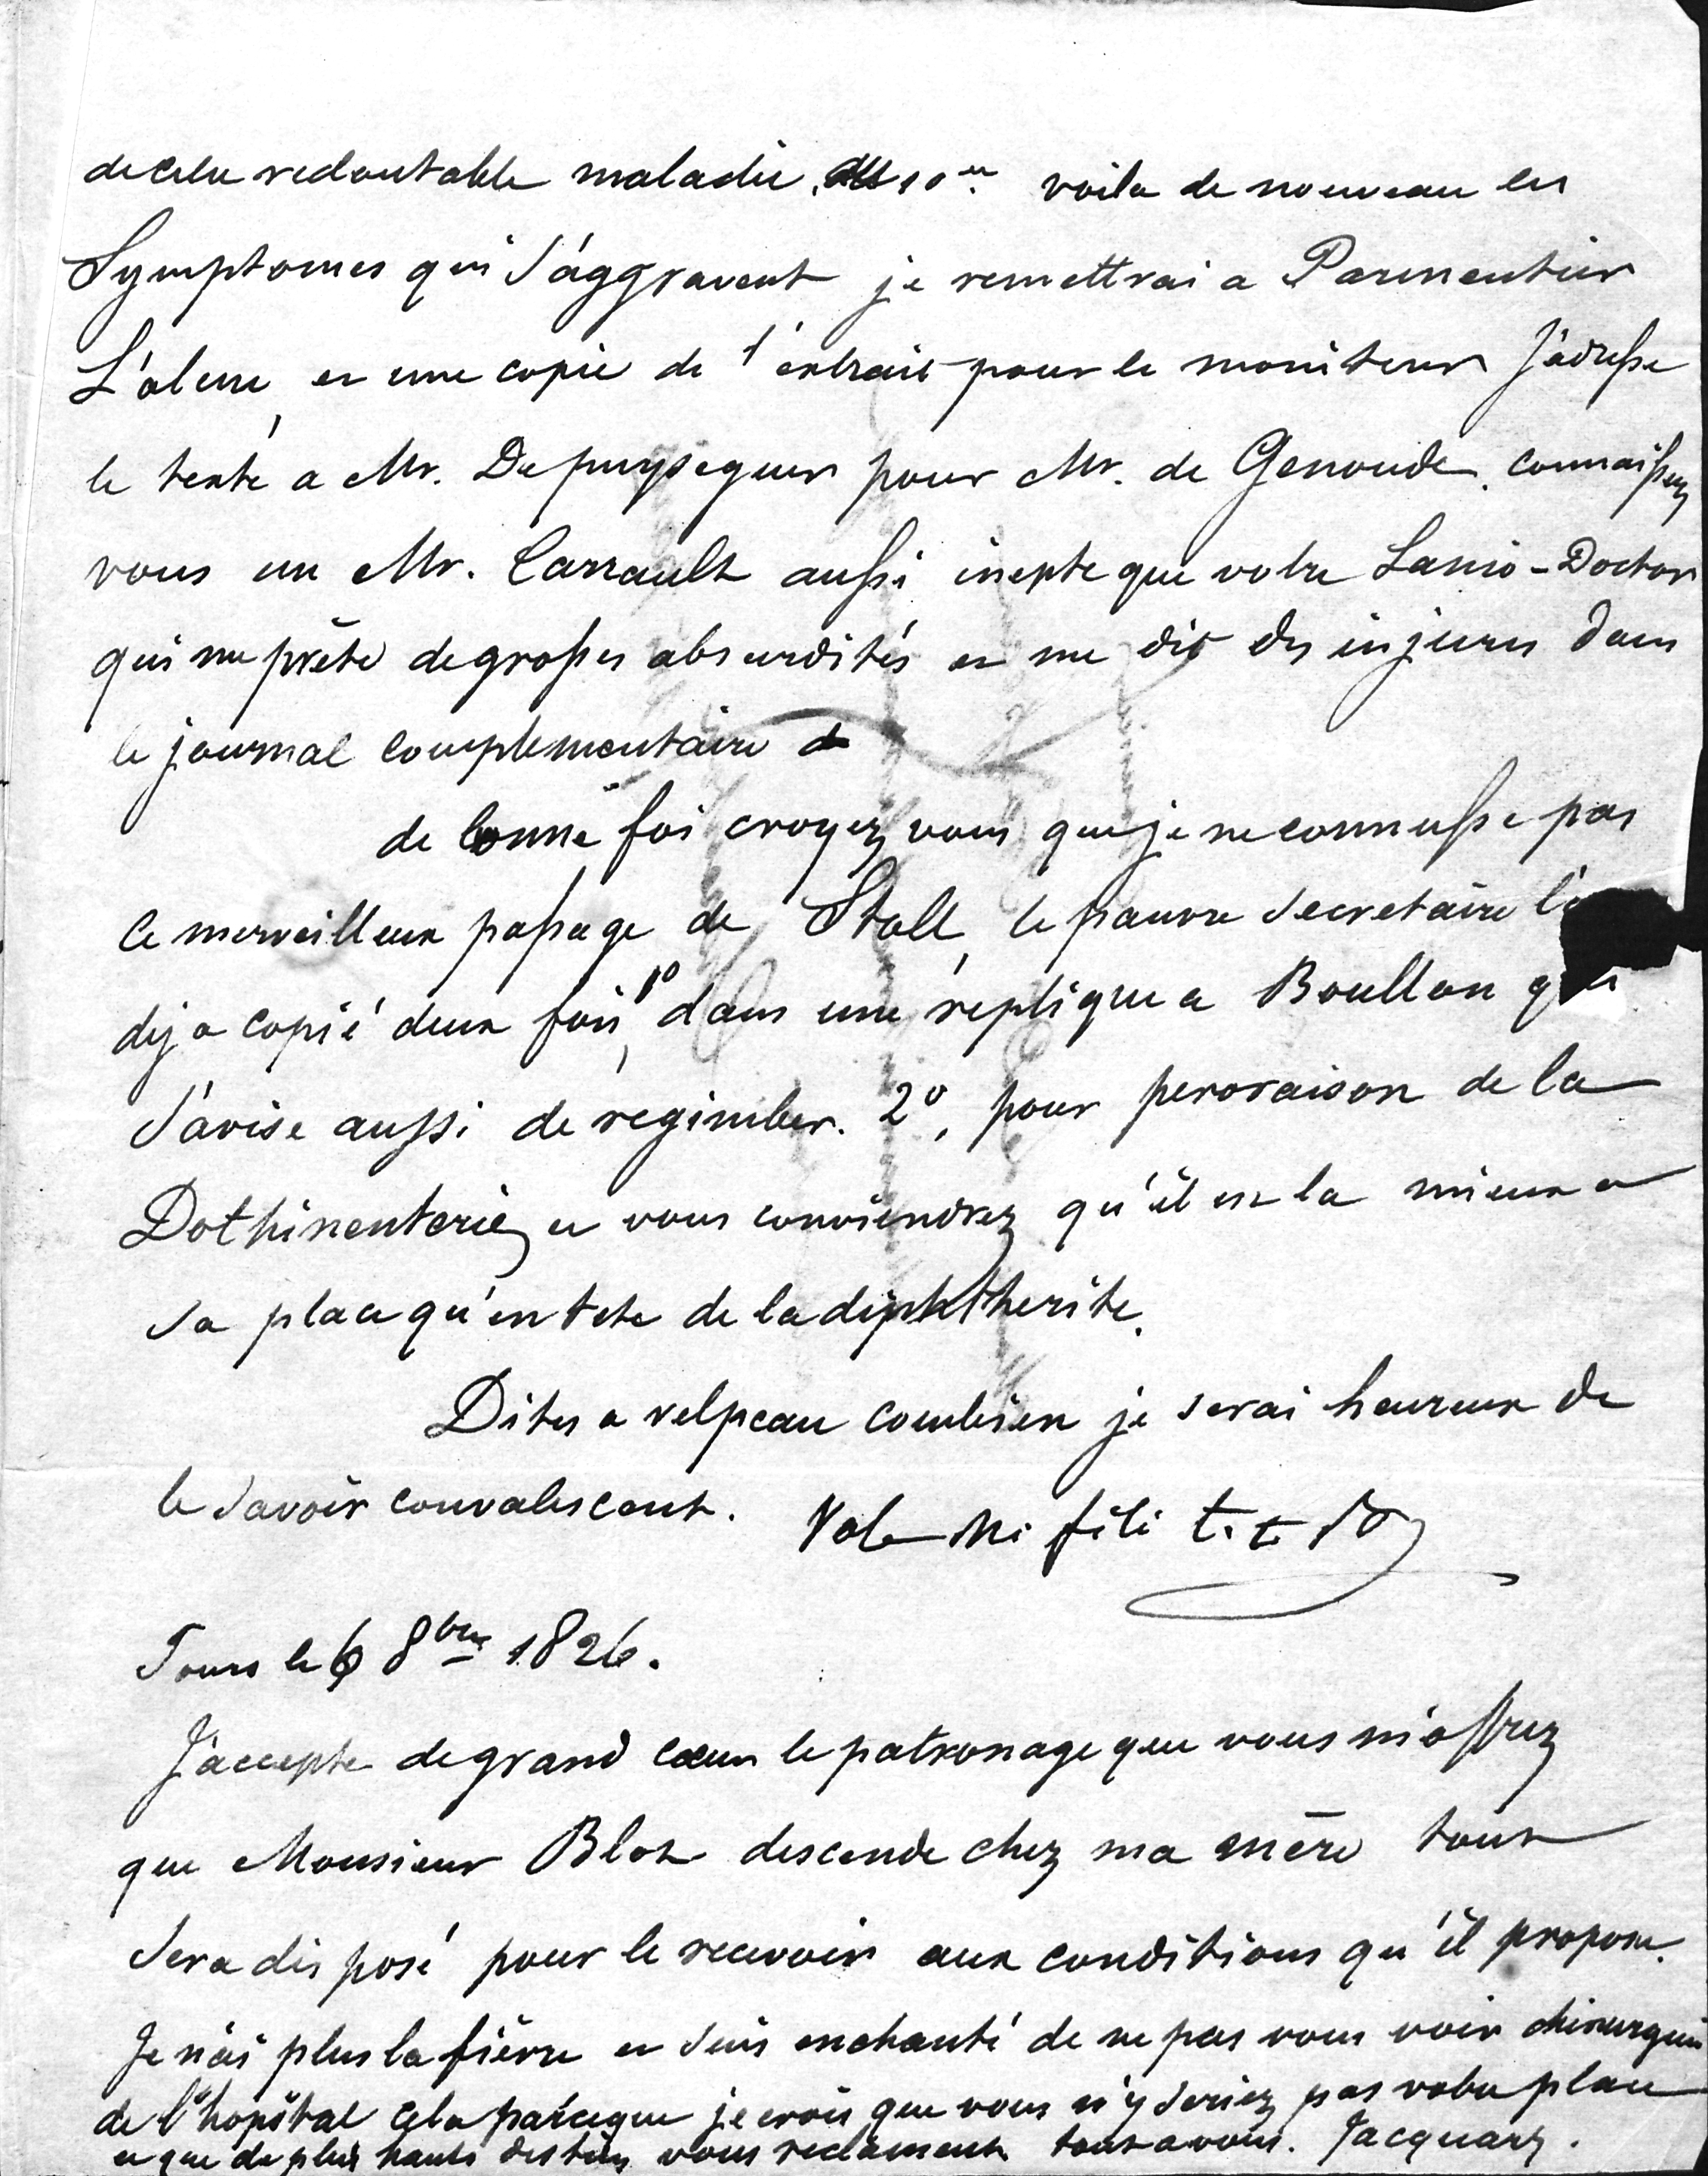 de cette redoutable maladie. voila de nouveau les
Symptomes qui s'aggravent je remettrai a Parmentier
L'alene, et une copie de l'extrait pour le moniteur J'adresse
le texte a Mr. De puysegur pour Mr. de Genoude. connaissez
vous un Mr. Carrault aussi inepte que votre Lanio-Doctor
qui me prête de grosses absurdités et me dit des injures dans
le journal complementaire de
de bonne foi croyez vous que je ne connusse pas
ce merveilleux passage de Stoll, le pauvre secretaire l'a
deja copié deux fois, 1º dans une réplique a Boullon qui
s'avise aussi de regimber. 2º, pour peroraison de la
Dothinenterie, et vous conviendrez qu'il est la mieux a
sa place qu'en tete de la diphtherite.
Dites a velpeau combien je serai heureux de
le savoir convalescent. Vale Mi fili t. t.
Tours le 6 8bre 1826.
J'accepte de grand cœur le patronage que vous m'offrez
que Monsieur Blot descende chez ma mère tout
sera disposé pour le recevoir aux conditions qu'il propose.
Je n'ai plus la fièvre et suis enchanté de ne pas vous voir chirurgien
de l'hopital cela parceque je crois que vous n'y seriez pas votre place
et que de plus hauts destins vous reclament tout a vous. Jacquart.